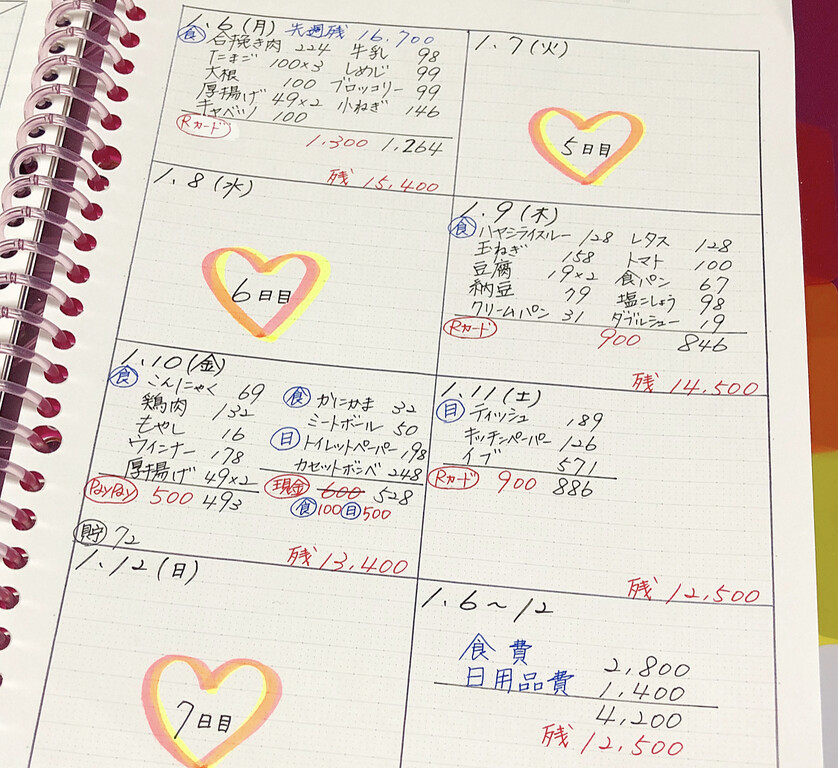 1.6(月) 先週残 16,700
食 合挽き肉 224 牛乳 98
たまご 100×3 しめじ 99
大根 100 ブロッコリー 99
厚揚げ 49×2 小ねぎ 146
キャベツ 100
Rカード 1,300 1,264
残 15,400
1.7(火)
5日目
1.8(水)
6日目
1.9(木)
食 ハヤシライスルー 128 レタス 128
玉ねぎ 158 トマト 100
豆腐 19×2 食パン 67
納豆 79 塩こしょう 98
クリームパン 31 ダブルシュー 19
Rカード 900 846
残 14,500
1.10(金)
食 こんにゃく 69
鶏肉 132
もやし 16
ウインナー 178
厚揚げ 49×2
PayPay 500 493
食 かにかま 32
ミートボール 50
日 トイレットペーパー 198
カセットボンベ 248
現金 600 528
食100日500
貯 72
残 13,400
1.11(土)
日 ティッシュ 189
キッチンペーパー 126
イブ 571
Rカード 900 886
残 12,500
1.12(日)
7日目
1.6〜12
食費 2,800
日用品費 1,400
4,200
残 12,500